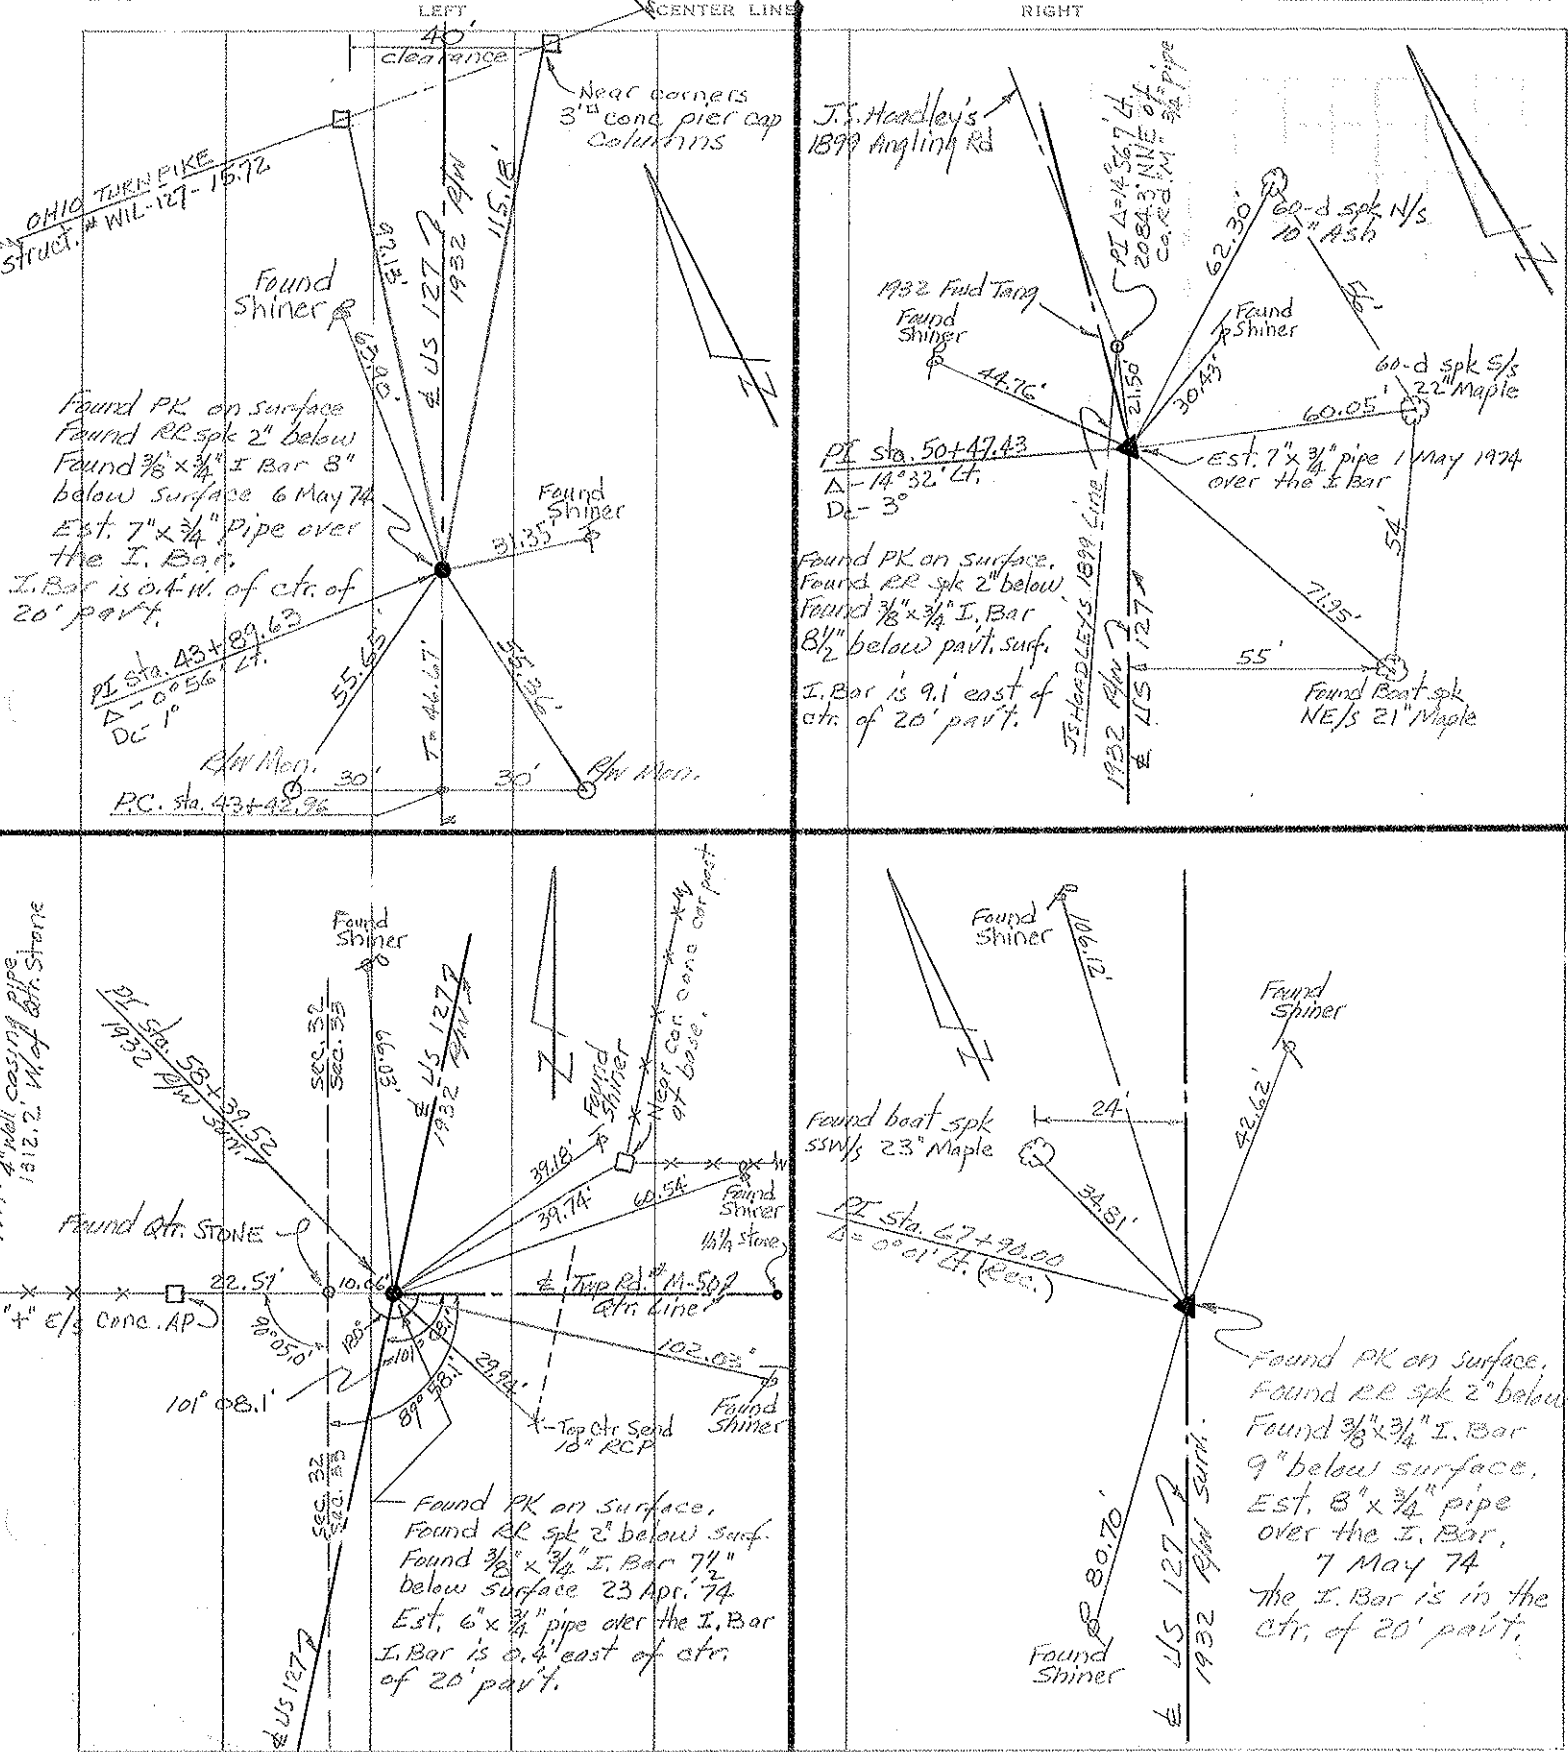 LEFT
CENTER LINE
RIGHT
40'
clearance
Near corners
3'□ conc pier cap
Columns
OHIO TURNPIKE
Struct. # WIL-127-15.72
92.13'
℄ US 127
1932 R/W
115.18'
Found
Shiner
63.90'
Found PK on surface
Found RR spk 2" below
Found 3/8 x 3/4" I Bar 8"
below surface 6 May 74
Est. 7" x 3/4" Pipe over
the I. Bar.
I. Bar is 0.4' W. of ctr. of
20' pav't.
Found
Shiner
31.35'
PI sta. 43+89.63
Δ - 0°56' Lt.
Dc - 1°
55.36'
T = 46.67'
R/W Mon.
30'
30'
R/W Mon.
P.C. sta. 43+42.96
Z
J.S. Hoadley's
1899 Angling Rd
PI Δ=14°56.7' Lt.
2084.3' NNE of
Co. Rd. "M" 3/4" pipe
62.30'
60-d spk N/s
10" Ash
Z
1932 Fwd Tang
Found
Shiner
Found
Shiner
56'
44.76'
21.50'
30.43'
60-d spk S/s
22" Maple
60.05'
PI sta. 50+47.43
Δ - 14°32' Lt.
Dc - 3°
Est. 7" x 3/4" pipe 1 May 1974
over the I Bar
54'
Found PK on surface.
Found RR spk 2" below
Found 3/8" x 3/4" I. Bar
8 1/2" below pav't. surf.
I. Bar is 9.1' east of
ctr. of 20' pav't.
J.S. HOADLEYS 1899 Line
1932 R/W
℄ US 127
71.95'
55'
Found Boat spk
NE/s 21" Maple
4" Well casing pipe
1312.2' W. of Qtr. Stone
PI Sta. 58+39.52
1932 R/W Surv.
Found
Shiner
Sec. 32
Sec. 33
60.99'
℄ US 127
1932 R/W
Z
Found
Shiner
Near cor. conc cor post
at base.
39.18'
39.74'
60.54'
Found
Shiner
Found Qtr. STONE
1/4 1/4 stone
22.57'
10.06'
℄ Twp Rd. # M-50
Qtr. Line
"+" E/s Conc. AP
90°05.0'
120°
101° 08.1'
101° 08.1'
89° 58.1'
29.94'
102.03'
Found
Shiner
Top Ctr S. end
10" RCP
Sec. 32
Sec. 33
℄ US 127
Found PK on surface.
Found RR spk 2" below surf.
Found 3/8" x 3/4" I. Bar 7 1/2"
below surface 23 Apr. '74
Est. 6" x 3/4" pipe over the I. Bar
I. Bar is 0.4' east of ctr.
of 20' pav't.
Found
Shiner
Found
Shiner
Z
24'
42.62'
Found boat spk
SSW/s 23" Maple
34.81'
PI Sta. 67+90.00
Δ = 0°01' Lt. (Rec.)
Found PK on surface.
Found RR spk 2" below
Found 3/8" x 3/4" I. Bar
9" below surface.
Est. 8" x 3/4" pipe
over the I. Bar.
7 May 74
The I. Bar is in the
ctr. of 20' pav't.
80.70'
Found
Shiner
℄ US 127
1932 R/W Surv.